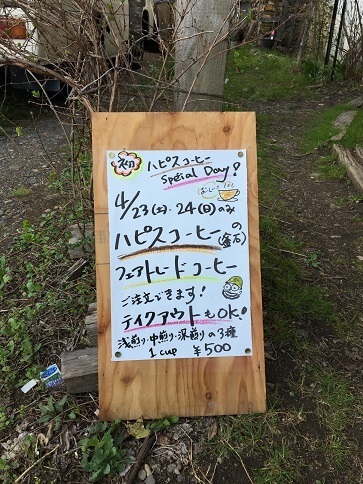 初 ハピスコーヒー
Special Day!
おいしーよ
4/23(土)・24(日)のみ
ハピスコーヒー(釜石)の
フェアトレードコーヒー
ご注文できます!
テイクアウトもOK!
浅煎り・中煎り・深煎りの3種
1cup ¥500